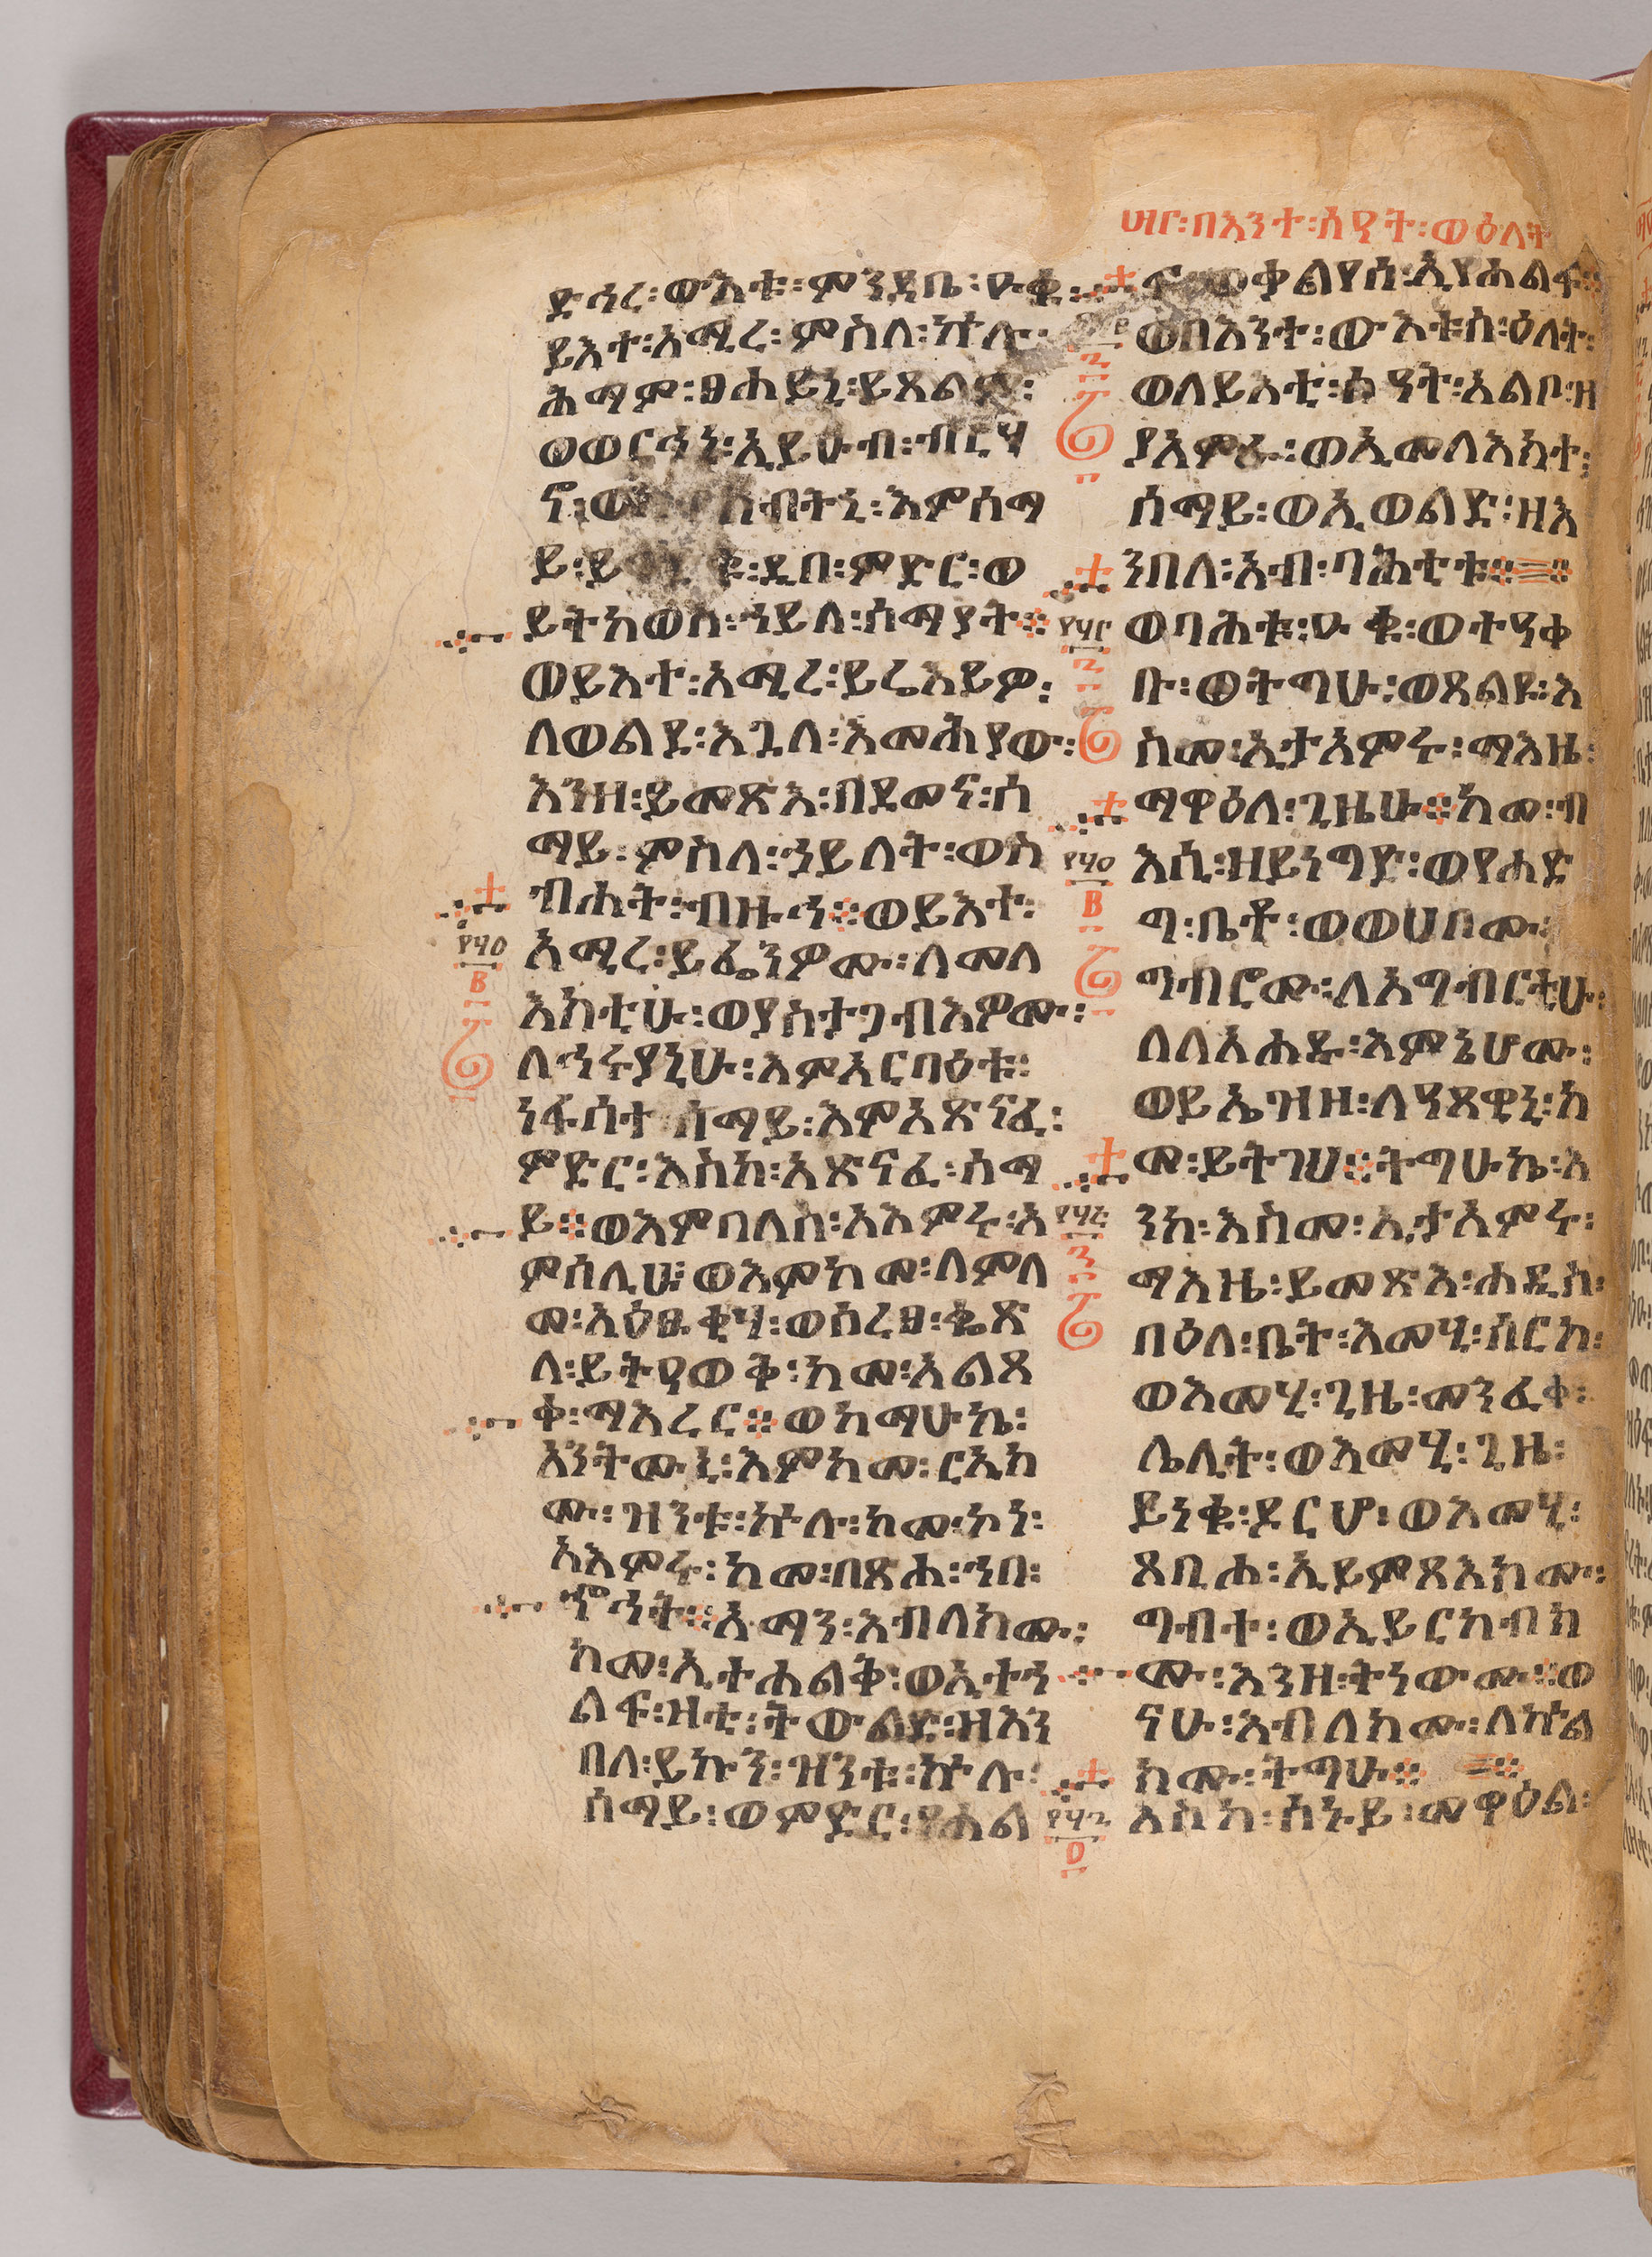 ድኅረ፡ውእቱ፡ምንዳቤ፡ዑቁ፡
ይእተ፡አሚረ፡ምስለ፡ኵሉ፡
ሕማም፡ፀሐይኒ፡ይጸልም፡
ወወርኅኒ፡ኢይሁብ፡ብርሃ
ኖ፡ከዋክብትኒ፡እምሰማ
ይ፡ዲበ፡ምድር፡ወ
ይትከወስ፡ኀይለ፡ሰማያት።
ወይእተ፡አሚረ፡ይሬእይዎ፡
ለወልደ፡እጓለ፡እመሕያው፡
እንዘ፡ይመጽእ፡በደመና፡ሰ
ማይ፡ምስለ፡ኃይለት፡ወስ
ብሐት፡ብዙኅ።ወይእተ፡
አሚረ፡ይፌንዎሙ፡ለመለ
እክቲሁ፡ወያስታጋብእዎሙ፡
ለኅሩያኒሁ፡እምአርባዕቱ፡
ነፋሰተ ሰማይ፡እምአጽናፈ፡
ምድር፡እስከ፡አጽናፈ፡ሰማ
ይ።ወእምበለስ፡አእምሩ፡አ
ምሰሊሁ፡ወእምከመ፡ለምለ
መ፡አዕፁቂሃ፡ወሰረፀ፡ቈጽ
ለ፡ይትዐወቅ፡ከመ፡አልጸ
ቀ፡ማእረር።ወከማሁኬ፡
አንትሙኒ፡እምከመ፡ርኢክ
ሙ፡ዝንቱ፡ኵሉ፡ከመ፡ኮነ፡
አእምሩ፡ከመ፡በጽሐ፡ኀበ፡
ኆኅት።አማን፡እብለክሙ፡
ከመ፡ኢተሐልቅ፡ወኢተኀ
ልፍ፡ዛቲ፡ትውልድ፡ዝእን
በለ፡ይኩን፡ዝንቱ፡ኵሉ፡
ሰማይ፡ወምድር፡የሐል
፵፫፡በእንተ፡ሰዓት፡ወዕለት
ፍ፡ወቃልየሰ፡ኢየሐልፍ።
ወበእንተ፡ውእቱሰ፡ዕለት፡
ወለይእቲ፡ሰዓት፡አልቦ፡ዘ
ያአምራ፡ወኢመለእክተ፡
ሰማይ፡ወኢወልድ፡ዘእ
ንበለ፡አብ፡ባሕቲቱ።
ወባሕቱ፡ዑቁ፡ወተዓቀ
ቡ፡ወትግሁ፡ወጸልዩ፡እ
ስመ፡ኢታአምሩ፡ማእዜ፡
ማዋዕለ፡ጊዜሁ።ከመ፡ብ
እሲ፡ዘይነግድ፡ወየሐድ
ግ፡ቤቶ፡ወወሀቦሙ፡
ግብሮሙ፡ለአግብርቲሁ፡
ለለአሐዱ፡እምኔሆሙ፡
ወይኤዝዝ፡ለዓጸዊኒ፡ከ
መ፡ይትገህ።ትግሁኬ፡እ
ንከ፡እስመ፡ኢታአምሩ፡
ማእዜ፡ይመጽእ፡ሐዲስ፡
በዕለ፡ቤት፡እመሂ፡ሰርከ፡
ወእመሂ፡ጊዜ፡መንፈቀ፡
ሌሊት፡ወእመሂ፡ጊዜ፡
ይነቁ፡ደርሆ፡ወእመሂ፡
ጸቢሐ፡ኢይምጸእክሙ፡
ግብተ፡ወኢይርከብክ
ሙ፡እንዘ፡ትነውሙ።ወ
ናሁ፡እብለክሙ፡ለኵል
ክሙ፡ትግሁ።
እስከ፡ሰኑይ፡መዋዕል፡